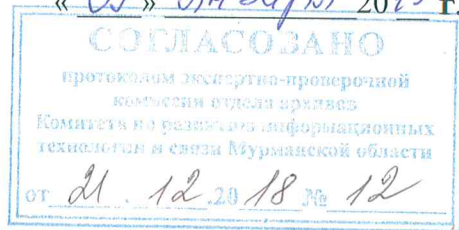 20 г.
СОГЛАСОВАНО
протоколом экспертно-проверочной
комиссии отдела архивов
Комитета по развитию информационных
технологий и связи Мурманской области
от 21 . 12 .20 18 № 12